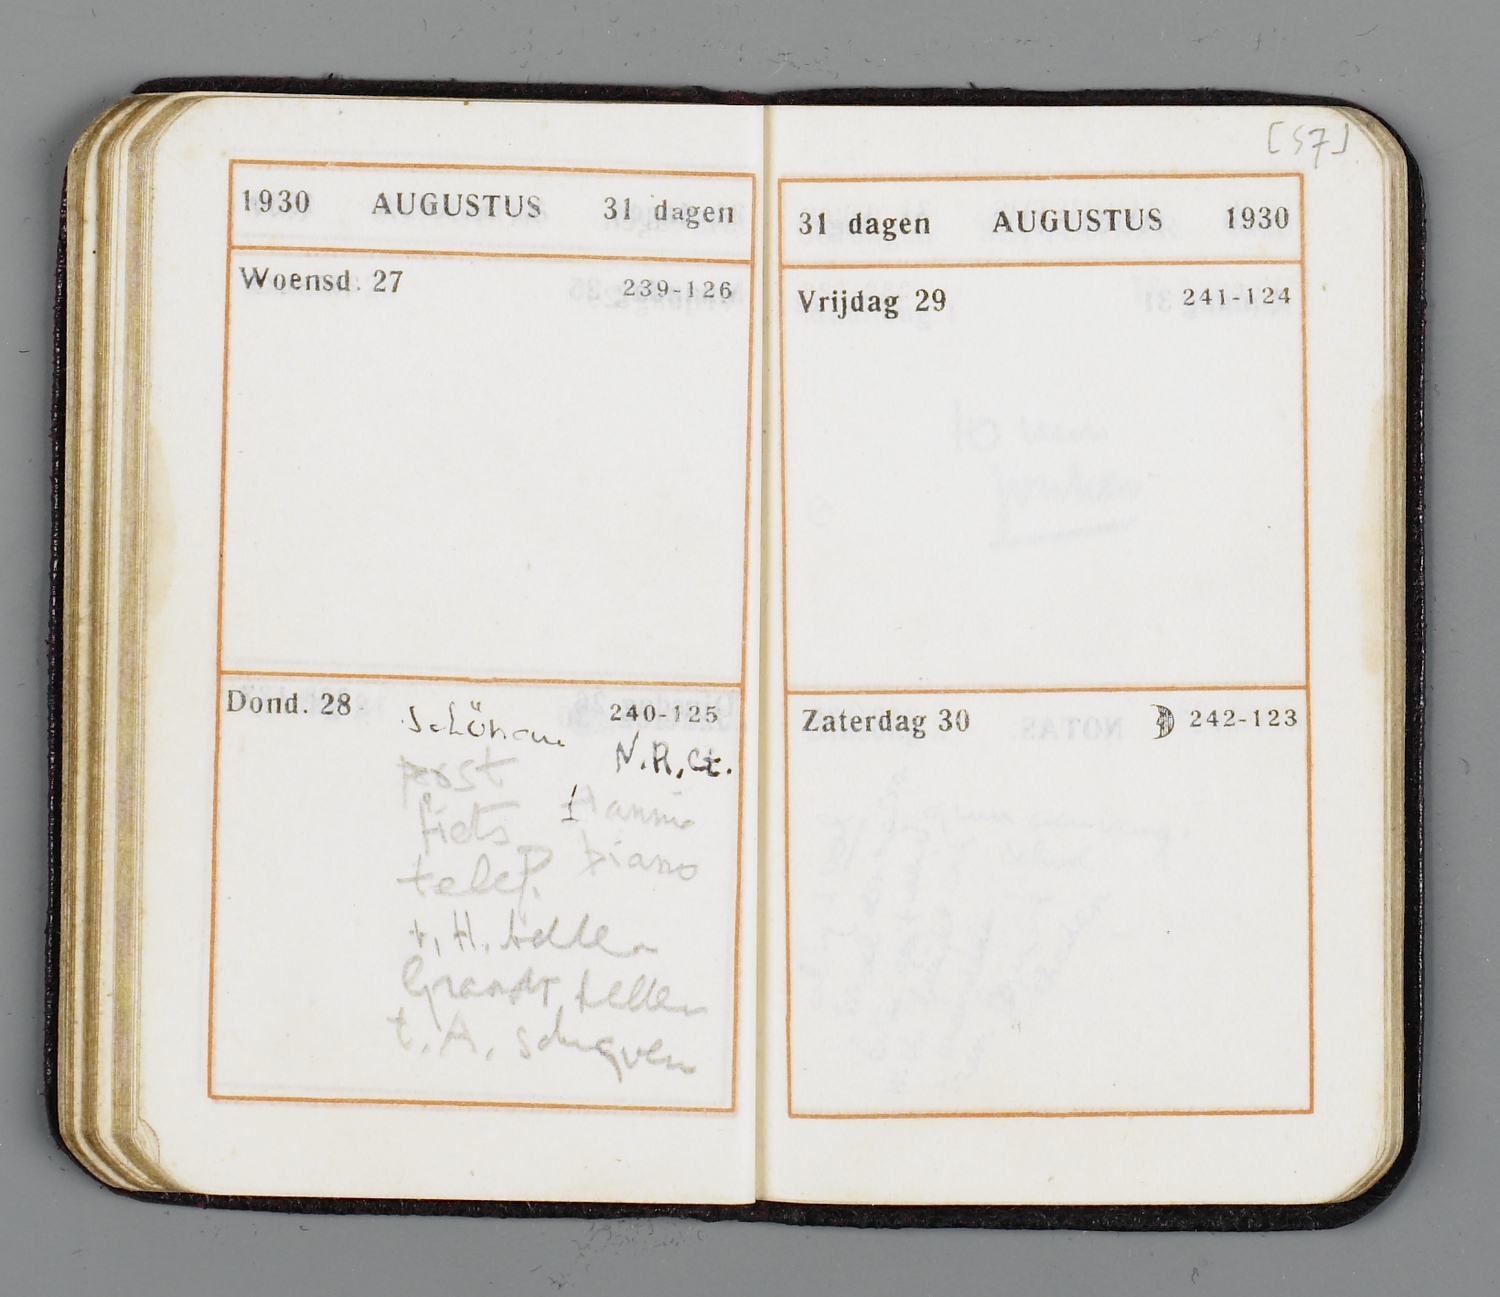 [57]
1930 AUGUSTUS 31 dagen
Woensd. 27 239-126
Dond. 28 240-125
Schönau
N.R.Ct.
post
Hannie
fiets
piano
telef.
t. H. bellen
bellen
t. A. schryven
31 dagen AUGUSTUS 1930
Vrijdag 29 241-124
Zaterdag 30 242-123